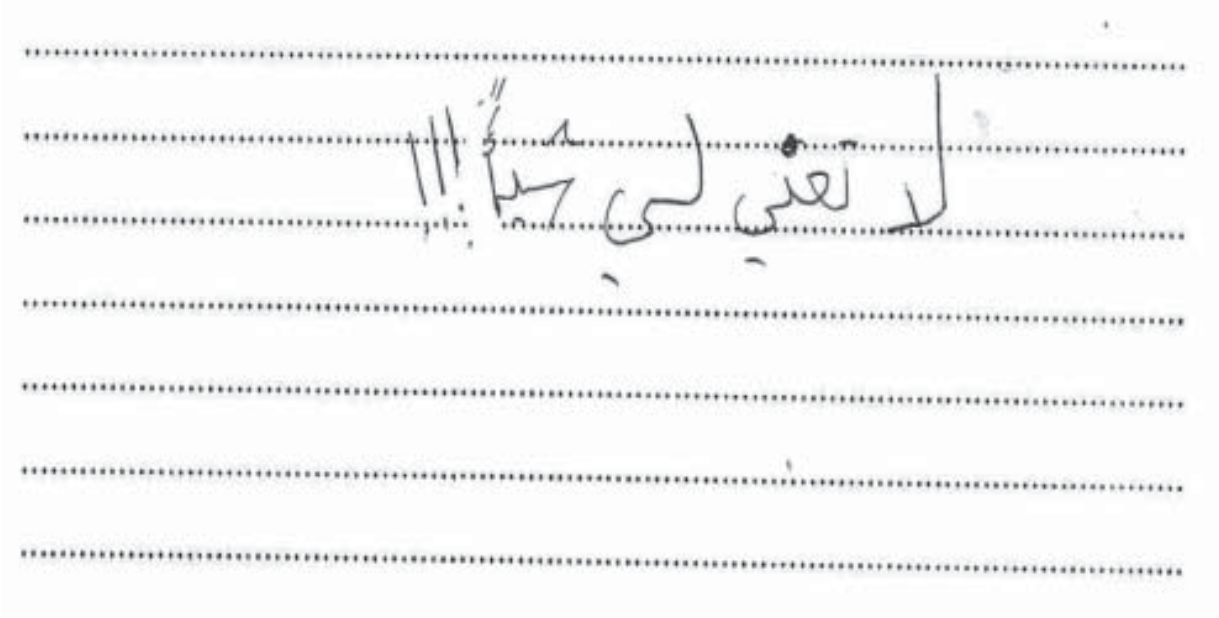 لا تعني لي شيئاً !!!